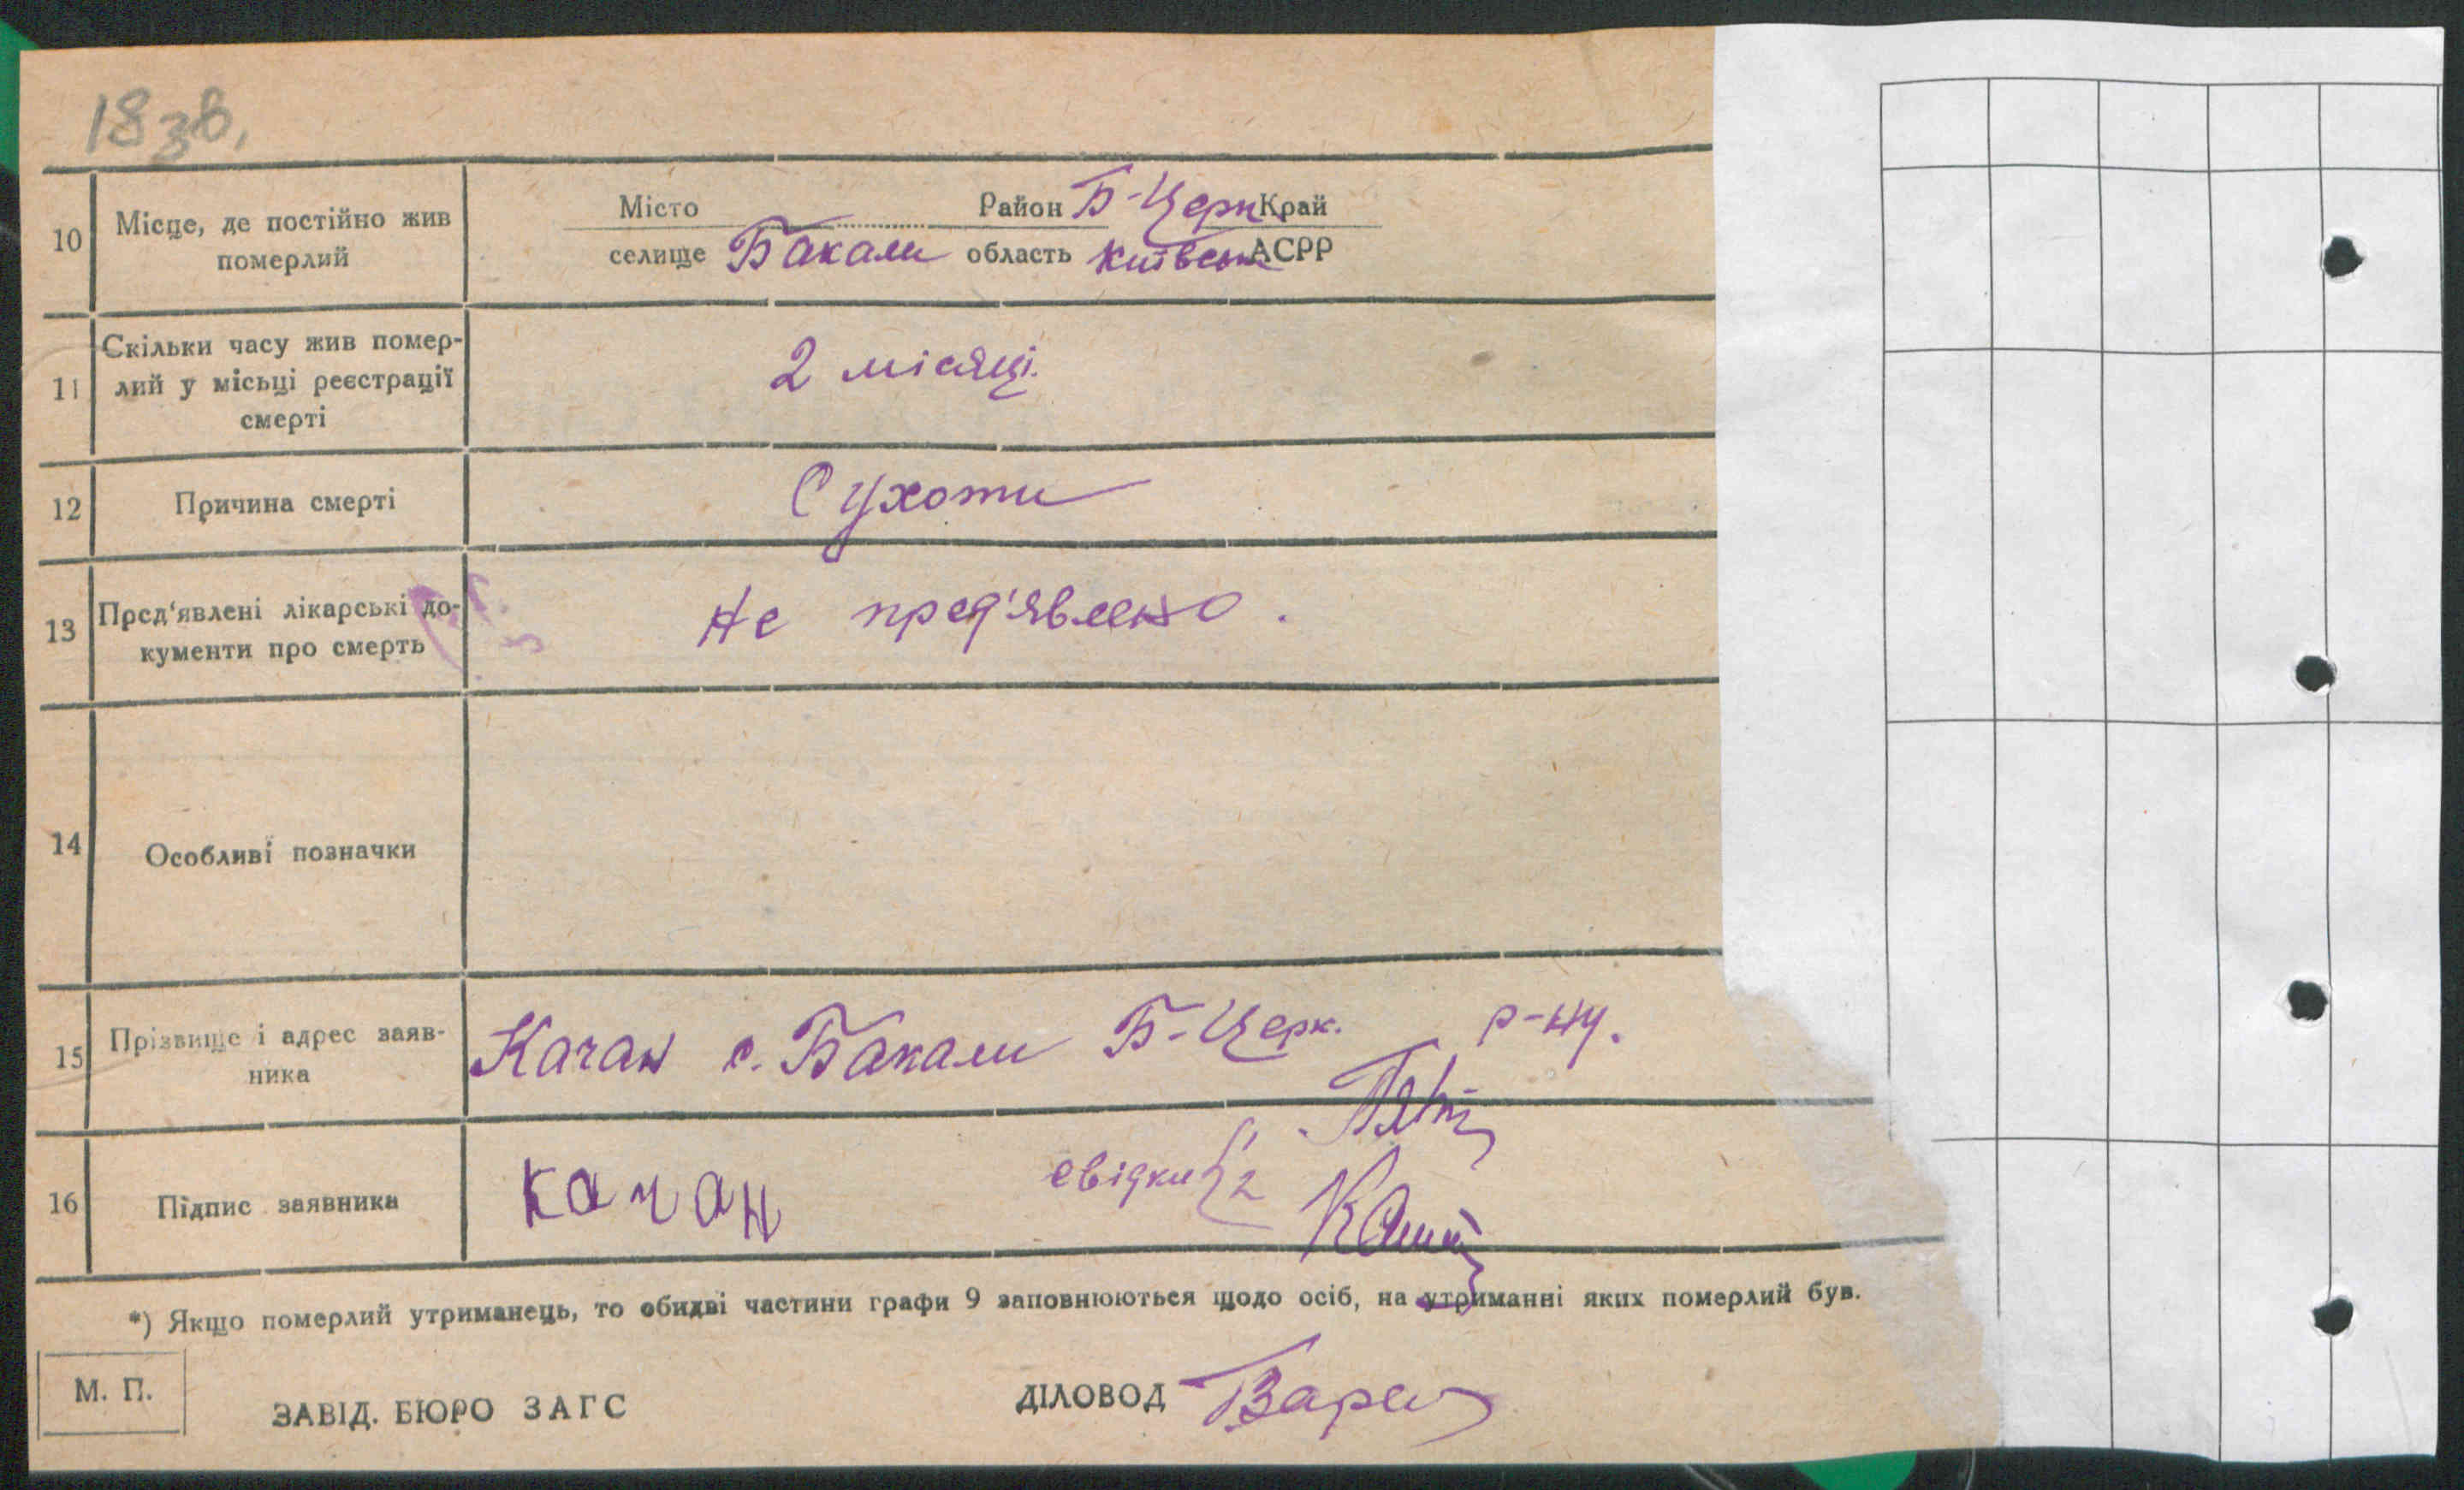 18 зв.
10 Місце, де постійно жив померлий
Місто Район Б-Церк Край
селище Бакали область Київськ АСРР
11 Скільки часу жив помер-
лий у місьці реєстрації
смерті
2 місяці.
12 Причина смерті
Сухоти
13 Пред'явлені лікарські до-
кументи про смерть
Не пред'явлено.
14 Особливі позначки
15 Прізвище і адрес заяв-
ника
Качан с. Бакали Б-Церк. р-ну.
16 Підпис заявника
качан
свідки 1. 2
*) Якщо померлий утриманець, то обидві частини графи 9 заповнюються щодо осіб, на утриманні яких померлий був.
М. П.
ЗАВІД. БЮРО ЗАГС
ДІЛОВОД